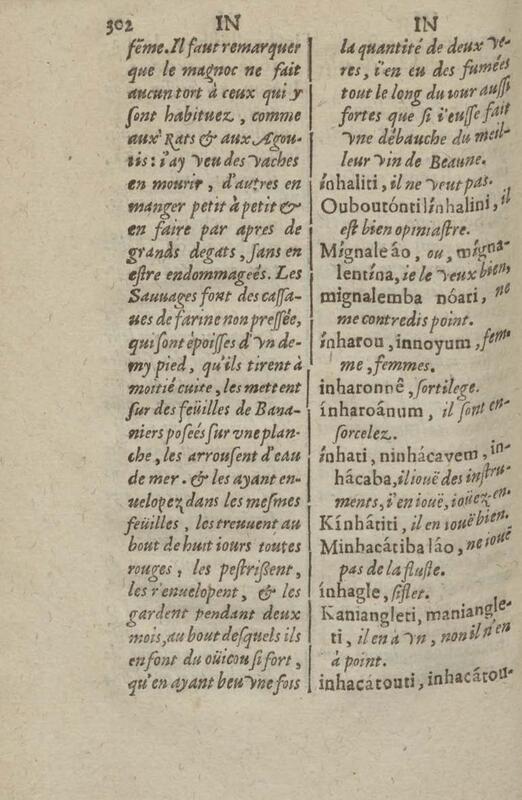 302 IN IN
fẽme. Il faut remarquer
que le magnoc ne fait
aucun tort à ceux qui y
ſont habituez, comme
aux Rats & aux Agou-
tis : i'ay veu des vaches
en mourir, d'autres en
manger petit à petit &
en faire par apres de
grands degats, ſans en
eſtre endommageés. Les
Sauuages font des caſſa-
ues de farine non preſſée,
qui ſont époiſſes d'vn de-
my pied, qu'ils tirent à
moitié cuite, les mettent
ſur des feüilles de Bana-
niers poſeés ſur vne plan-
che, les arrouſent d'eau
de mer. & les ayant en-
uelopez dans les meſmes
feüilles, les treuuent au
bout de huit iours toutes
rouges, les peſtriſſent,
les r'enuelopent, & les
gardent pendant deux
mois, au bout deſquels ils
en font du oüicou ſi fort,
qu'en ayant beu vne fois
la quantité de deux ve-
res, i'en eu des fumées
tout le long du iour auſſi
fortes que ſi i'euſſe fait
vne débauche du meil-
leur vin de Beaune.
ínhaliti, il ne veut pas.
Ouboutóntilínhalini, il
eſt bien opiniaſtre.
Mígnaleáo, ou, mígna-
lentína, ie le veux bien,
mignalemba nóati, ne
me contredis point.
ínharou, innoyum, fem-
me, femmes.
inharonnê, ſortilege.
ínharoânum, il ſont en-
ſorcelez.
ínhati, ninhácayem, in-
hácaba, il iouë des inſtru-
ments, i'en iouë, ioüez en.
Kínhátiti, il en iouë bien.
Minhacátiba láo, ne iouë
pas de la fluſte.
ínhagle, ſiflet.
Kaniangleti, maniangle-
ti, il en à vn, non il n'en
à point.
inhacátouti, inhacátou-